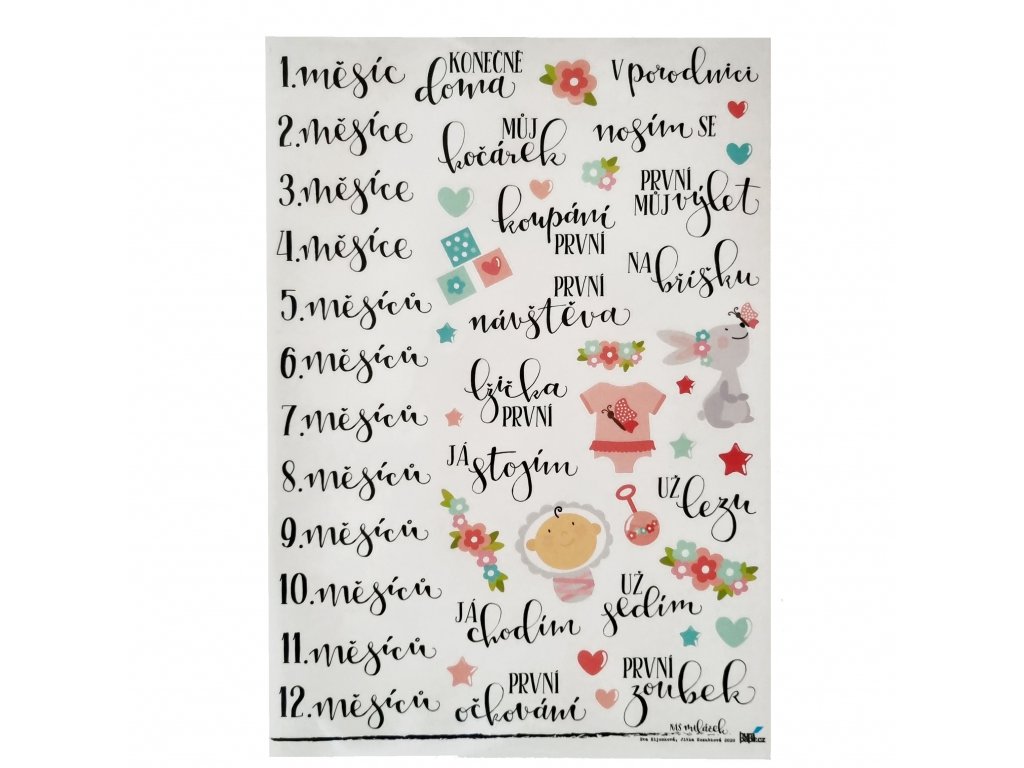 1. měsíc
2. měsíce
3. měsíce
4. měsíce
5. měsíců
6. měsíců
7. měsíců
8. měsíců
9. měsíců
10. měsíců
11. měsíců
12. měsíců
KONEČNĚ
doma
V porodnici
MŮJ
kočárek
nosím SE
koupání
PRVNÍ
PRVNÍ
MŮJ výlet
NA bříšku
PRVNÍ
návštěva
lžička
PRVNÍ
JÁ stojím
UŽ lezu
JÁ chodím
UŽ
sedím
PRVNÍ
očkování
PRVNÍ
zoubek
NÁŠ miláček